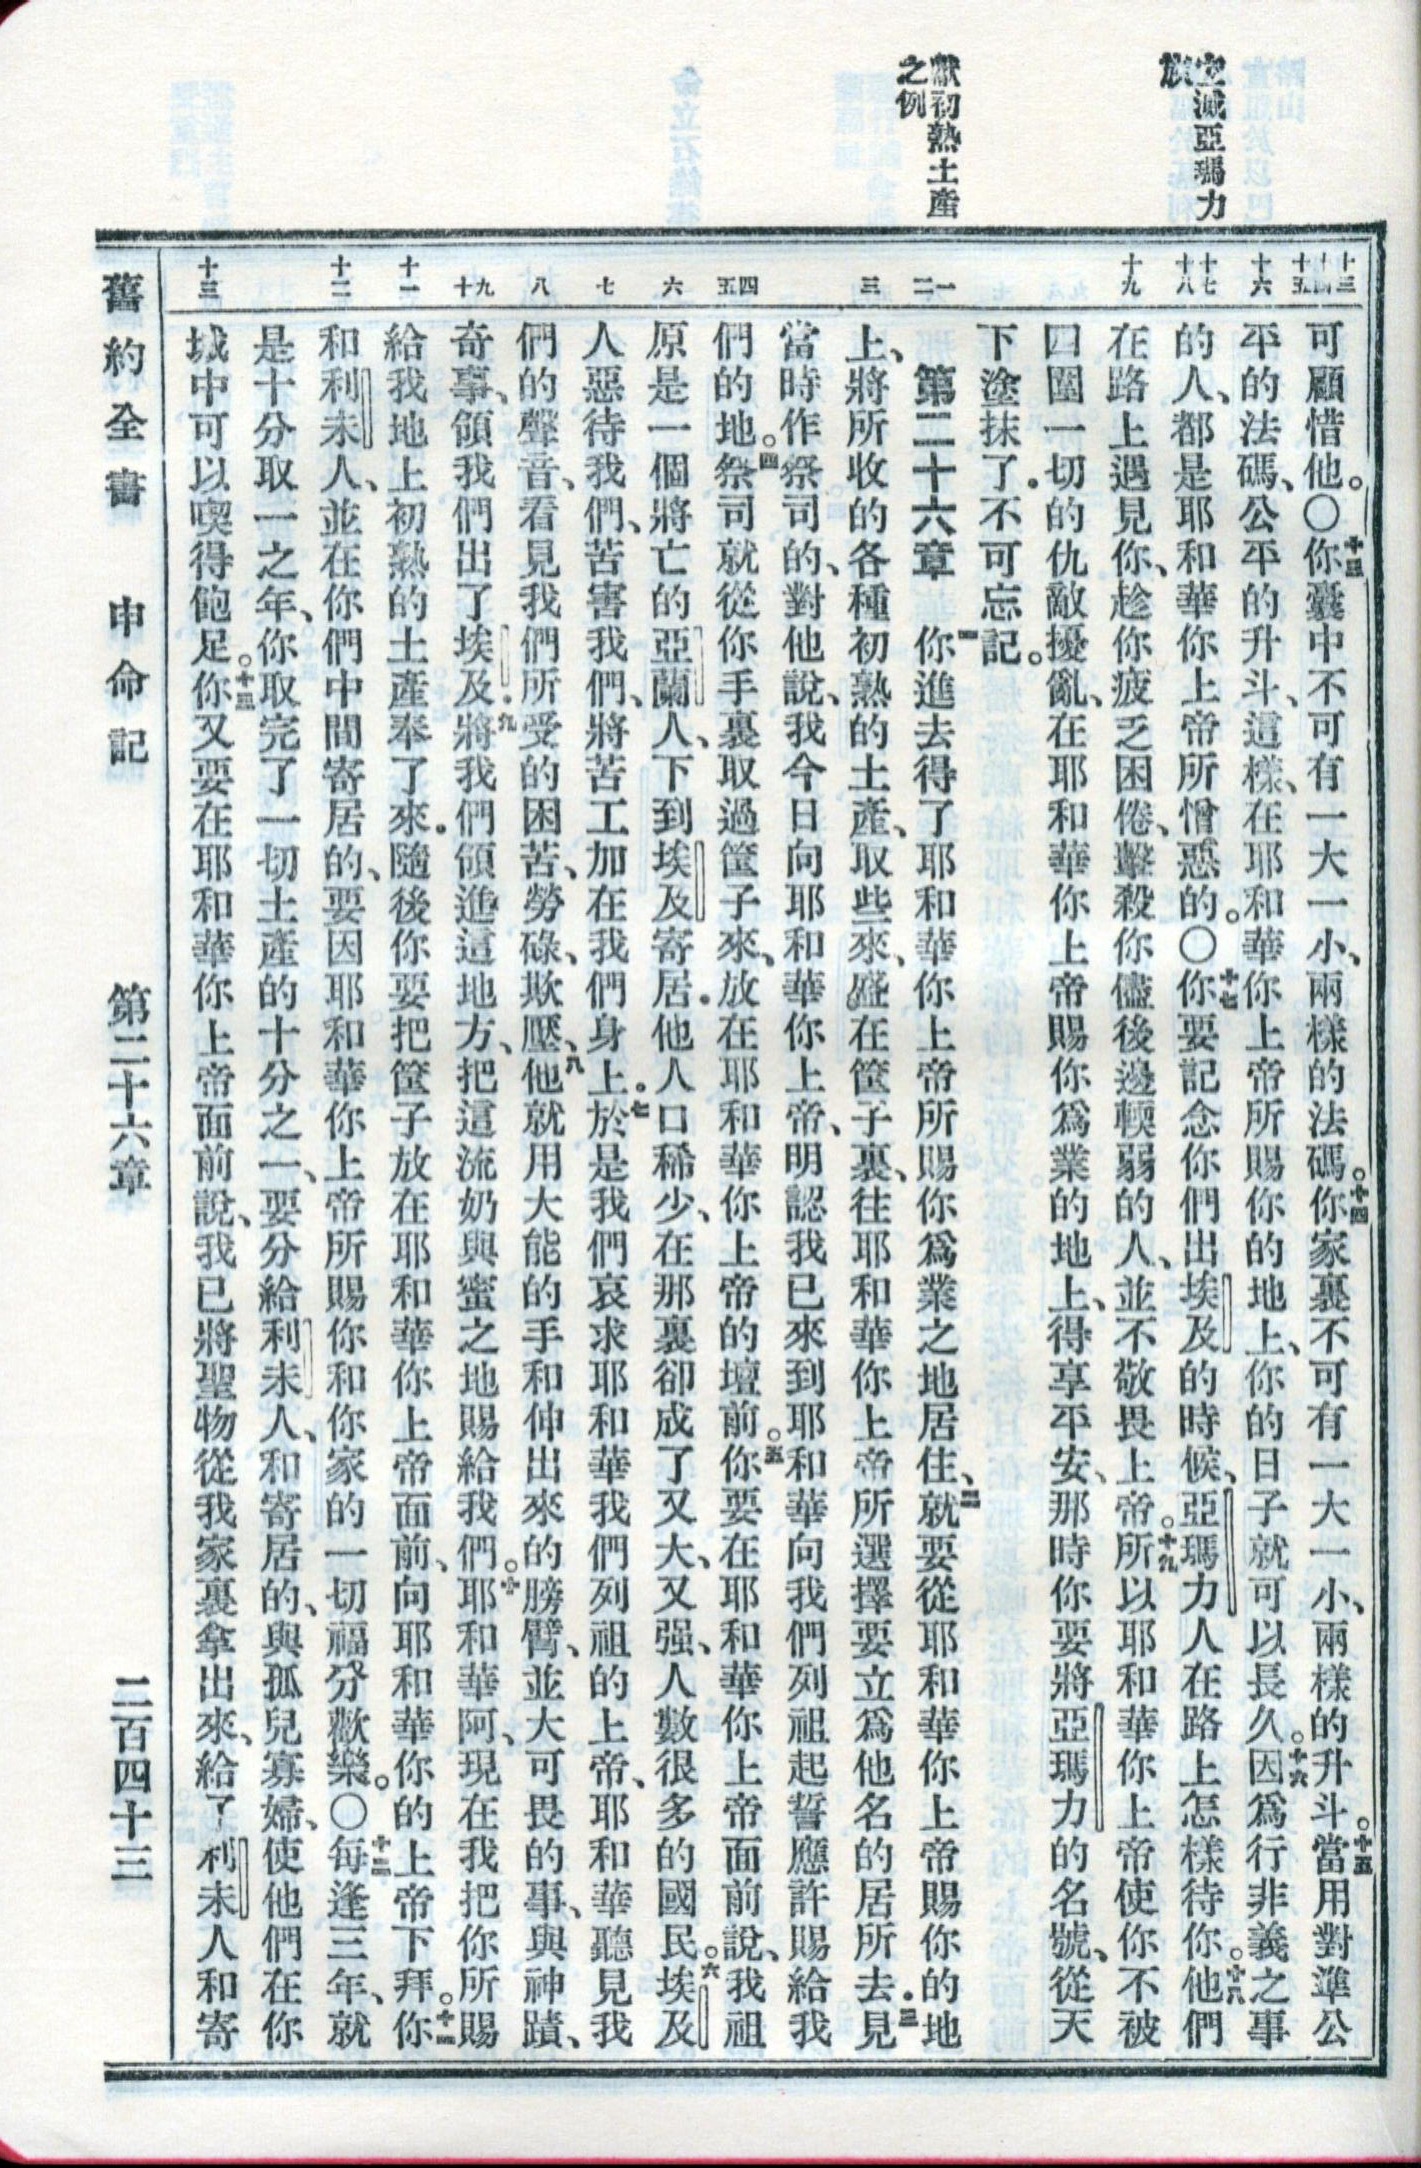 定滅亞瑪力
族
獻初熟土產
之例
十三
十四
十五
十六
十七
十八
十九
一
二
三
四
五
六
七
八
九
十
十一
十二
十三
可顧惜他。〇十三你囊中不可有一大一小、兩樣的法碼。十四你家裏不可有一大一小、兩樣的升斗。十五當用對準公
平的法碼、公平的升斗、這樣、在耶和華你上帝所賜你的地上、你的日子就可以長久。十六因爲行非義之事
的人、都是耶和華你上帝所憎惡的。〇十七你要記念你們出埃及的時候、亞瑪力人在路上怎樣待你。十八他們
在路上遇見你、趁你疲乏困倦、擊殺你儘後邊輭弱的人、並不敬畏上帝。十九所以耶和華你上帝使你不被
四圍一切的仇敵擾亂、在耶和華你上帝賜你爲業的地上、得享平安、那時你要將亞瑪力的名號、從天
下塗抹了．不可忘記。
第二十六章 一你進去得了耶和華你上帝所賜你爲業之地居住、二就要從耶和華你上帝賜你的地
上、將所收的各種初熟的土產、取些來、盛在筐子裏、往耶和華你上帝所選擇要立爲他名的居所去．三見
當時作祭司的、對他說、我今日向耶和華你上帝、明認我已來到耶和華向我們列祖起誓應許賜給我
們的地。四祭司就從你手裏取過筐子來、放在耶和華你上帝的壇前。五你要在耶和華你上帝面前說、我祖
原是一個將亡的亞蘭人、下到埃及寄居．他人口稀少、在那裏卻成了又大、又强、人數很多的國民。六埃及
人惡待我們、苦害我們、將苦工加在我們身上．七於是我們哀求耶和華我們列祖的上帝、耶和華聽見我
們的聲音、看見我們所受的困苦、勞碌、欺壓、八他就用大能的手和伸出來的膀臂、並大可畏的事、與神蹟、
奇事、領我們出了埃及．九將我們領進這地方、把這流奶與蜜之地賜給我們。十耶和華阿、現在我把你所賜
給我地上初熟的土產奉了來．隨後你要把筐子放在耶和華你上帝面前、向耶和華你的上帝下拜。十一你
和利未人、並在你們中間寄居的、要因耶和華你上帝所賜你和你家的一切福分歡樂。〇十二每逢三年、就
是十分取一之年、你取完了一切土產的十分之一、要分給利未人、和寄居的、與孤兒寡婦、使他們在你
城中可以喫得飽足。十三你又要在耶和華你上帝面前說、我已將聖物從我家裏拿出來、給了利未人和寄
舊約全書 申命記 第二十六章 二百四十三